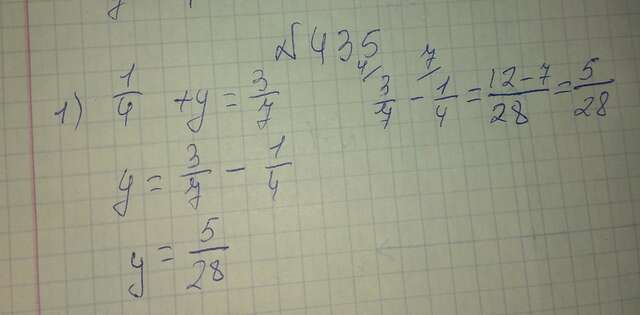 №435
1) 1/4 + y = 3/7    3/7 - 1/4 = 12-7/28 = 5/28
4 7
y = 3/7 - 1/4
y = 5/28